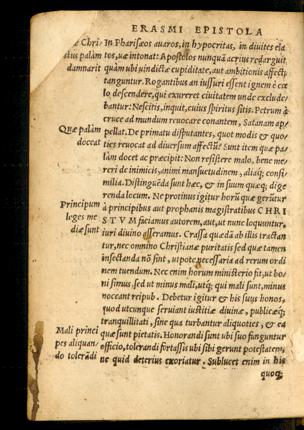 ERASMI EPISTOLA
Chri In Pharisæos auaros, in hypocritas, in diuites ela
stus palàm tos, uæ intonat: Apostolos nunquã acrius redarguit
damnarit quàm ubi uindictæ cupiditate, aut ambitionis affectu
tanguntur. Rogantibus an iussuri essent ignem è cœ
lo descendere, qui exureret ciuitatem unde exclude-
bantur: Nescitis, inquit, cuius spiritus sitis. Petrum à
cruce ad mundum reuocare conantem, Satanam ap-
Quæ palàm pellat. De primatu disputantes, quot modis & quo-
doceat ties reuocat ad diuersum affectũ? Sunt item quæ pa-
làm docet ac præcipit: Non resistere malo, bene me-
reri de inimicis, animi mansuetudinem, aliaq; consi-
milia. Distinguẽda sunt hæc, & in suum quæq; dige
renda locum. Ne protinus igitur horũ quæ gerũtur
Principum à principibus aut prophanis magistratibus CHRI
leges me STVM faciamus autorem, aut, ut nunc loquuntur,
diæ sunt iuri diuino asseramus. Crassa quædã ab illis tractan
tur, nec omnino Christianæ puritatis sed quæ tamen
insectanda nõ sint, utpote necessaria ad rerum ordi
nem tuendum. Nec enim horum ministerio fit, ut bo
ni simus sed ut minus mali, utq; qui mali sunt, minus
noceant reipub. Debetur igitur & his suus honos,
quòd utcunque seruiant iustitiæ diuinæ, publicæq;
tranquillitati, sine qua turbantur aliquoties, & ea
Mali princi quæ sunt pietatis. Honorandi sunt ubi suo funguntur
pes aliquan officio, tolerandi fortassis ubi sibi gerunt potestatem,
do tolerãdi ne quid deterius exoriatur. Sublucet enim in his
quoq;